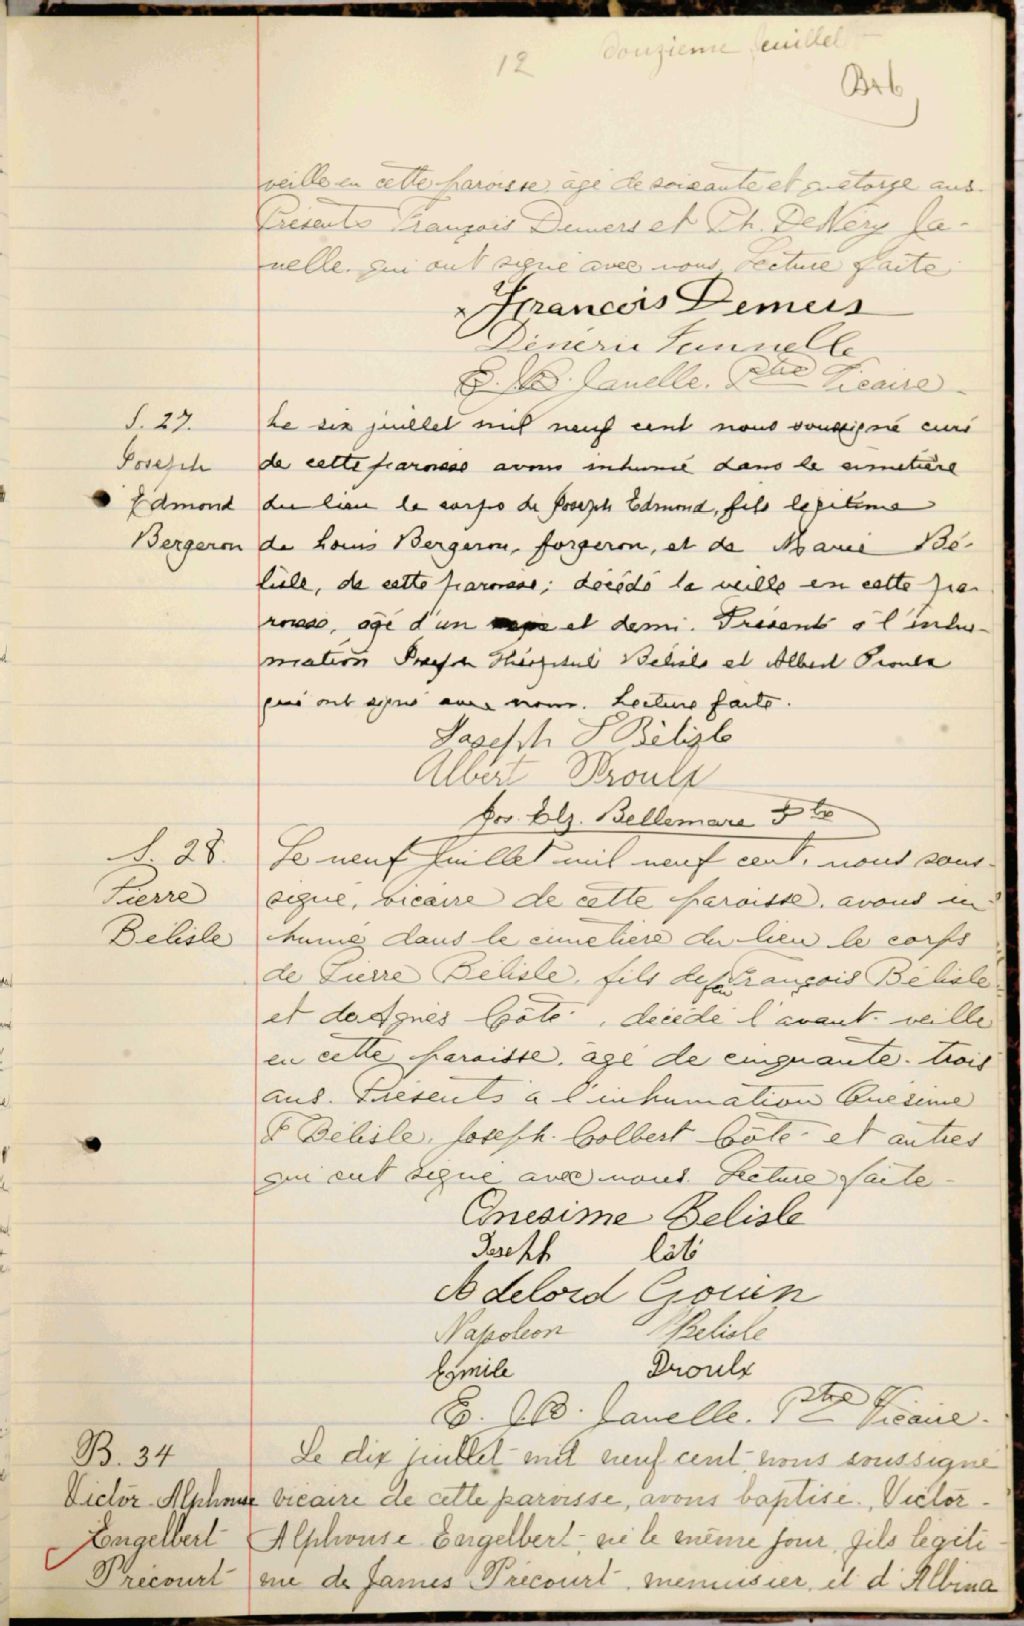 12 Douzieme feuillet
veille en cette paroisse, agé de soixante et quatorze ans.
Présents François Demers et Ph. DeNéry Ja-
nelle qui ont signé avec nous. Lecture faite.
x François Demers
Dénéri Jannelle
E. J.B. Janelle. Ptre Vicaire
S. 27.
Joseph
Edmond
Bergeron
Le six juillet mil neuf cent nous soussigné curé
de cette paroisse avons inhumé dans le cimetière
du lieu le corps de Joseph Edmond, fils légitime
de Louis Bergeron, forgeron, et de Marie Bé-
lisle, de cette paroisse; décédé la veille en cette pa-
roisse, agé d'un et demi. Présents à l'inhu-
mation Joseph Bélisle et Albert Proulx
qui ont signé avec nous. Lecture faite.
Joseph T Bélisle
Albert Proulx
Jos. Elz. Bellemare Ptre
S. 28.
Pierre
Bélisle
Le neuf Juillet mil neuf cent, nous sous-
signé, vicaire de cette paroisse, avons in-
humé dans le cimetière du lieu le corps
de Pierre Bélisle, fils de feu François Bélisle
et de Agnès Côté, décédé l'avant-veille
en cette paroisse, agé de cinquante-trois
ans. Présents à l'inhumation Onésime
F Bélisle, Joseph-Colbert Côté et autres
qui ont signé avec nous. Lecture faite.
Onesime Belisle
Joseph Côté
Adelord Gouin
Napoleon Belisle
Emile Proulx
E. J.B. Janelle. Ptre Vicaire.
B. 34
Victor-Alphonse
Engelbert
Précourt
Le dix juillet mil neuf cent nous soussigné
vicaire de cette paroisse, avons baptisé, Victor-
Alphonse Engelbert, né le même jour, fils légiti-
me de James Précourt, menuisier, et d'Albina